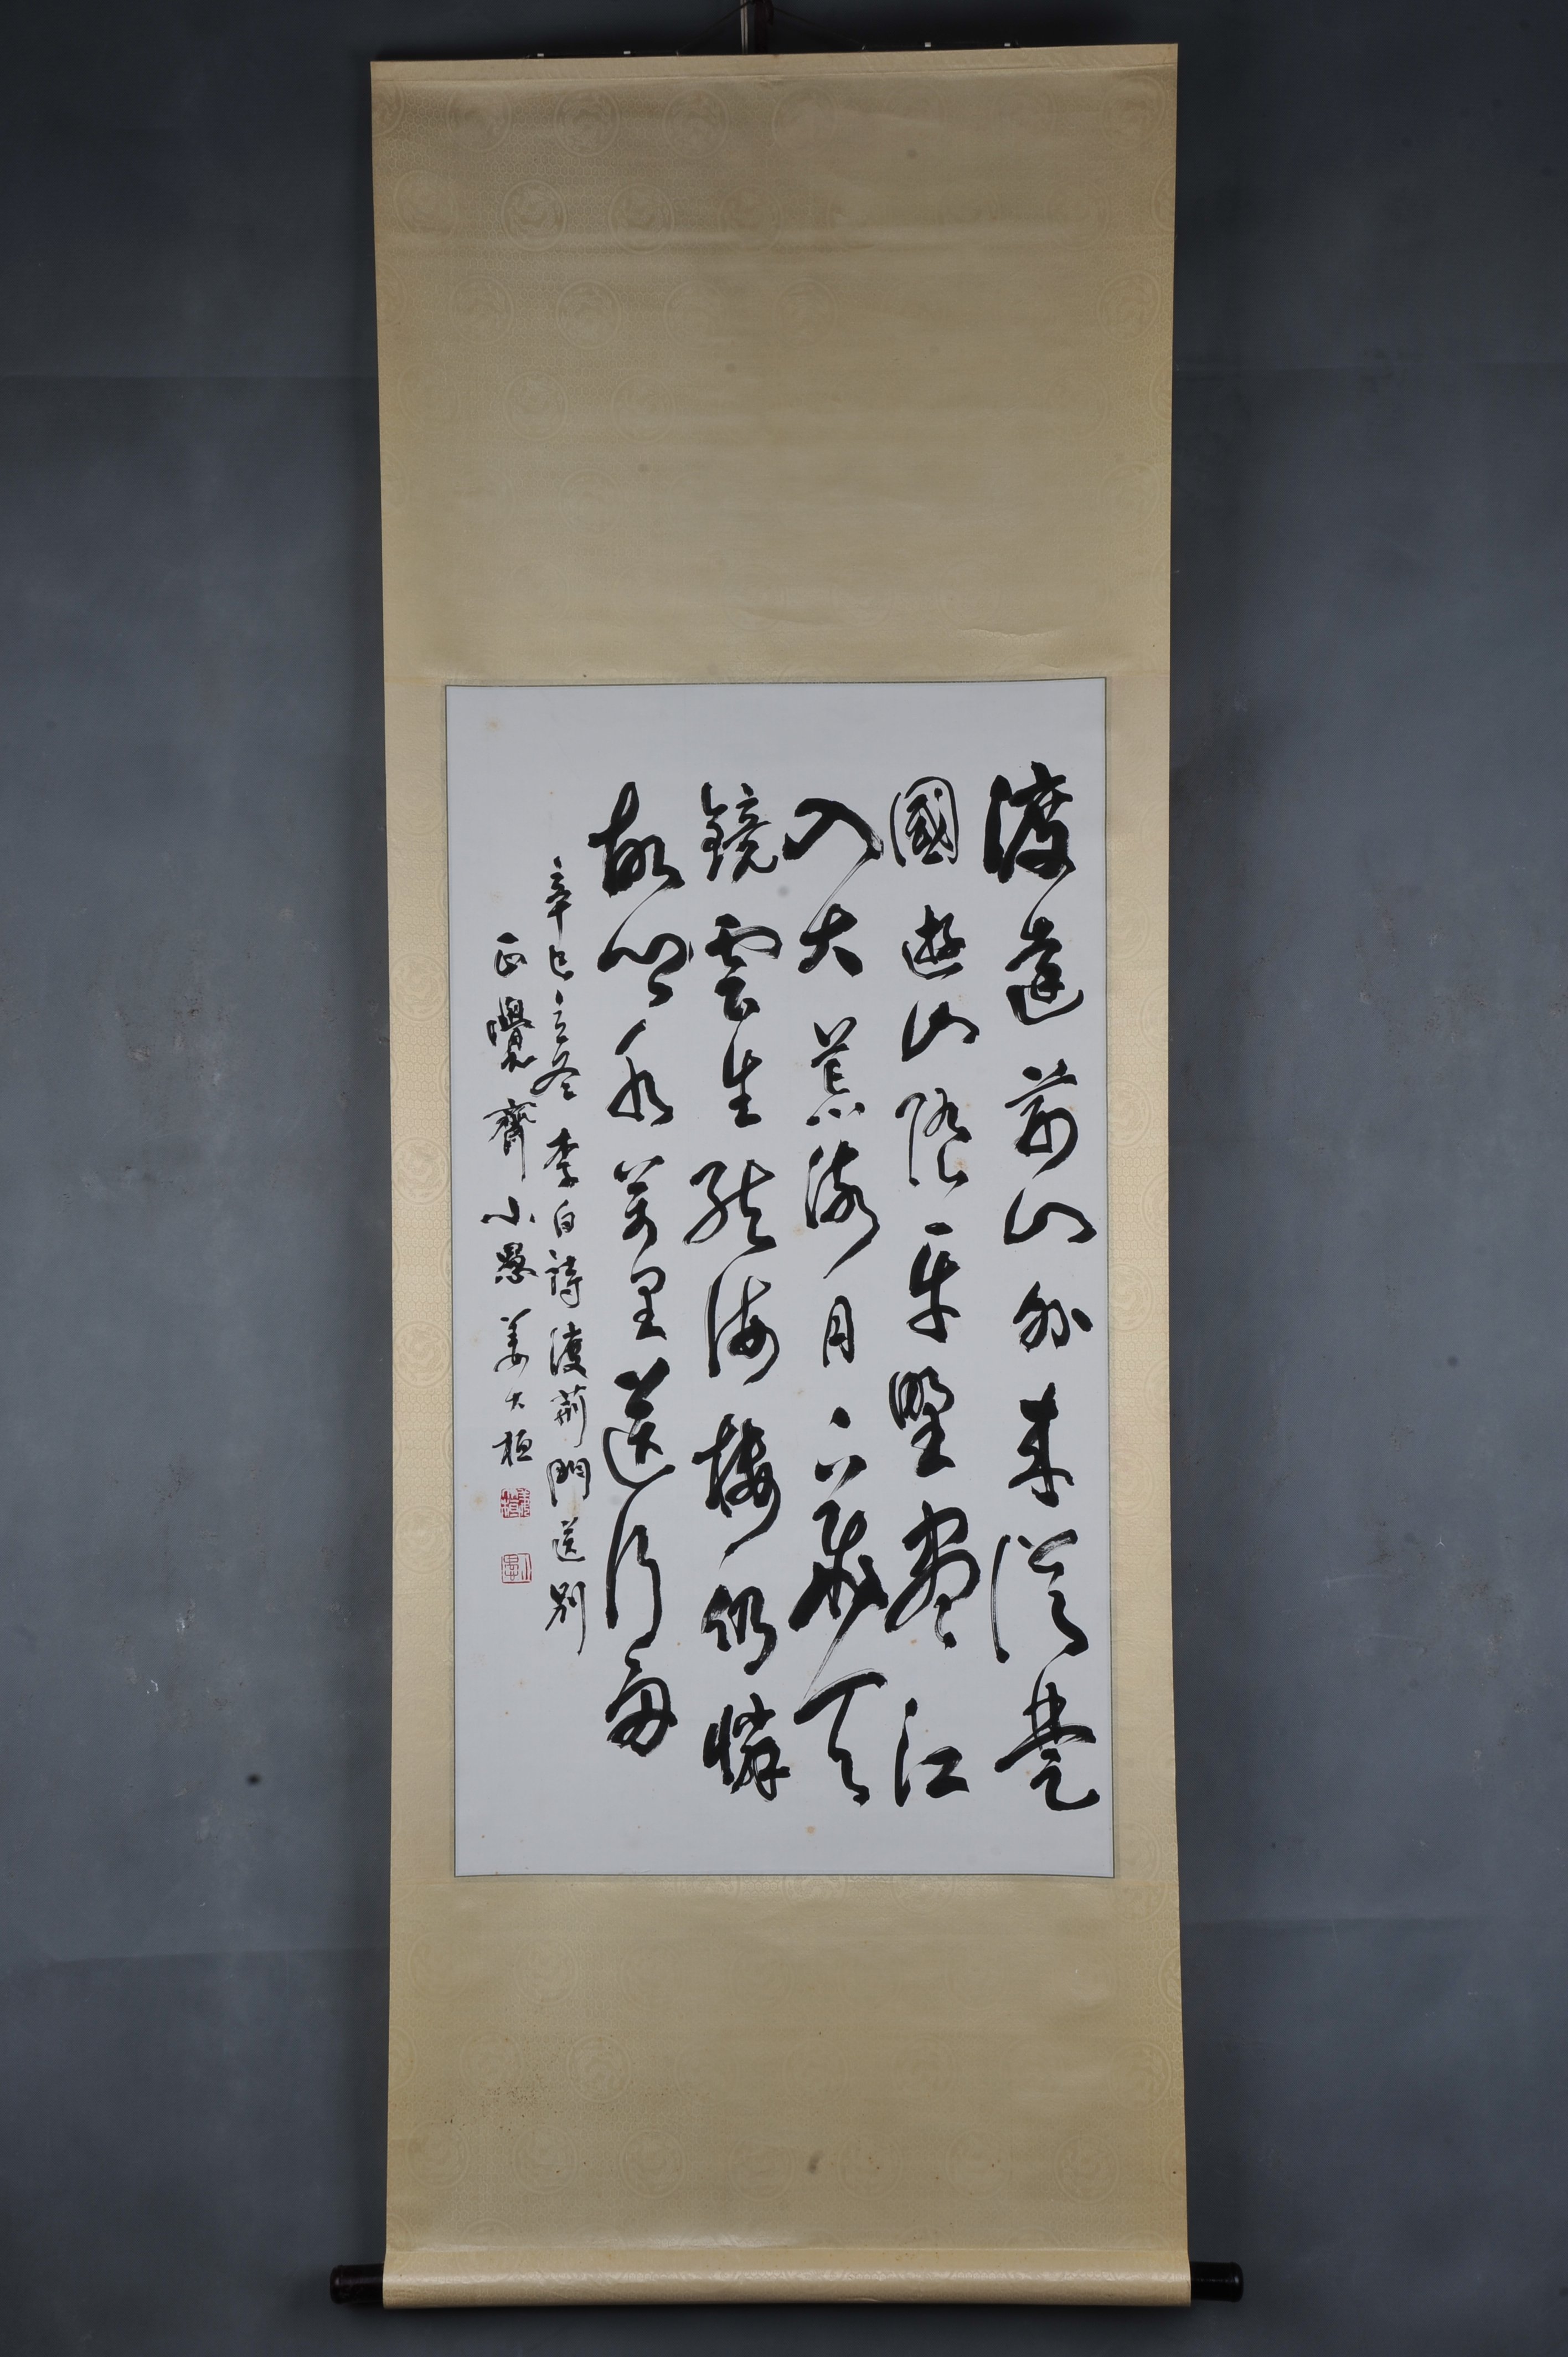 渡遠荊山外來從楚
國遊山隨平野盡江
入大荒流月下飛天
鏡雲生結海樓仍憐
故鄉水萬里送行舟
辛巳立冬 李白詩渡荊門送別
正覺齋小愚姜大桓